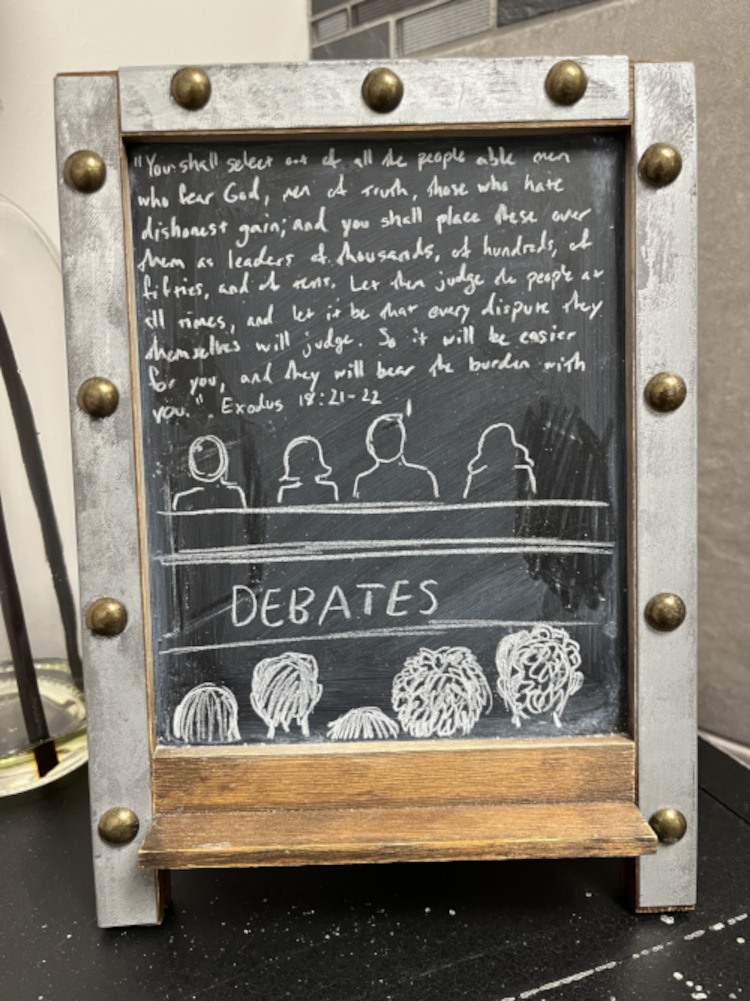 "You shall select out of all the people able men
who fear God, men of truth, those who hate
dishonest gain; and you shall place these over
them as leaders of thousands, of hundreds, of
fifties, and of tens. Let them judge the people at
all times, and let it be that every dispute they
themselves will judge. So it will be easier
for you, and they will bear the burden with
you." Exodus 18:21-22
DEBATES